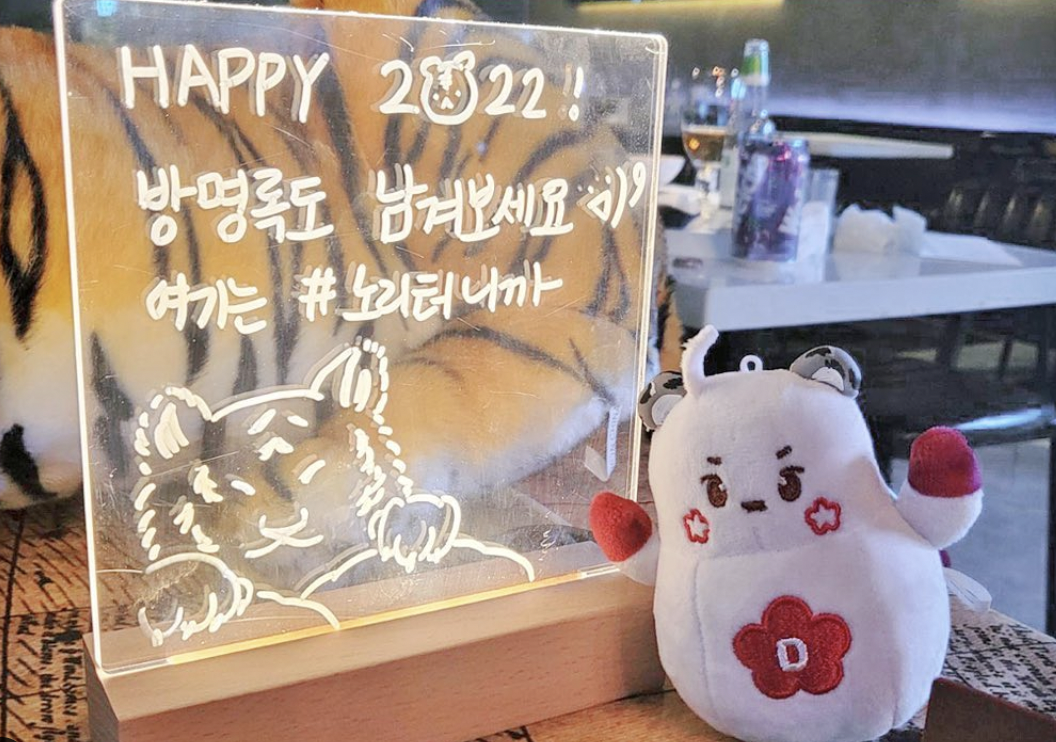 HAPPY 2022!
방명록도 남겨보세요 :)
여기는 #노리터니까
D